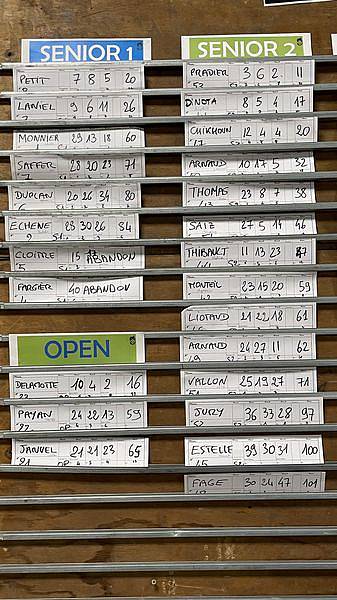 SENIOR 1
PETIT 7 8 5 20
LANIEL 9 6 11 26
MONNIER 29 13 18 60
SAETER 28 20 23 71
DUOLAN 20 26 34 80
ECHENE 28 30 26 84
CLOITRE 15 ABANDON
FARGIER 40 ABANDON
OPEN
DELAROTTE 10 4 2 16
PAYAN 24 22 13 59
JANUEL 21 21 23 65
SENIOR 2
PRADIER 3 6 2 11
DINOTA 8 5 4 17
GUIKHOUN 12 4 4 20
ARNAUD 10 17 5 32
THOMAS 23 8 7 38
SAIZ 27 5 14 46
THIBAULT 11 13 23 47
MONTEIL 23 15 20 59
LIOTAUD 21 22 18 61
ARNAUD 24 27 11 62
VALLON 25 19 27 71
JURY 36 33 28 97
ESTELLE 39 30 31 100
FAGE 30 24 47 101